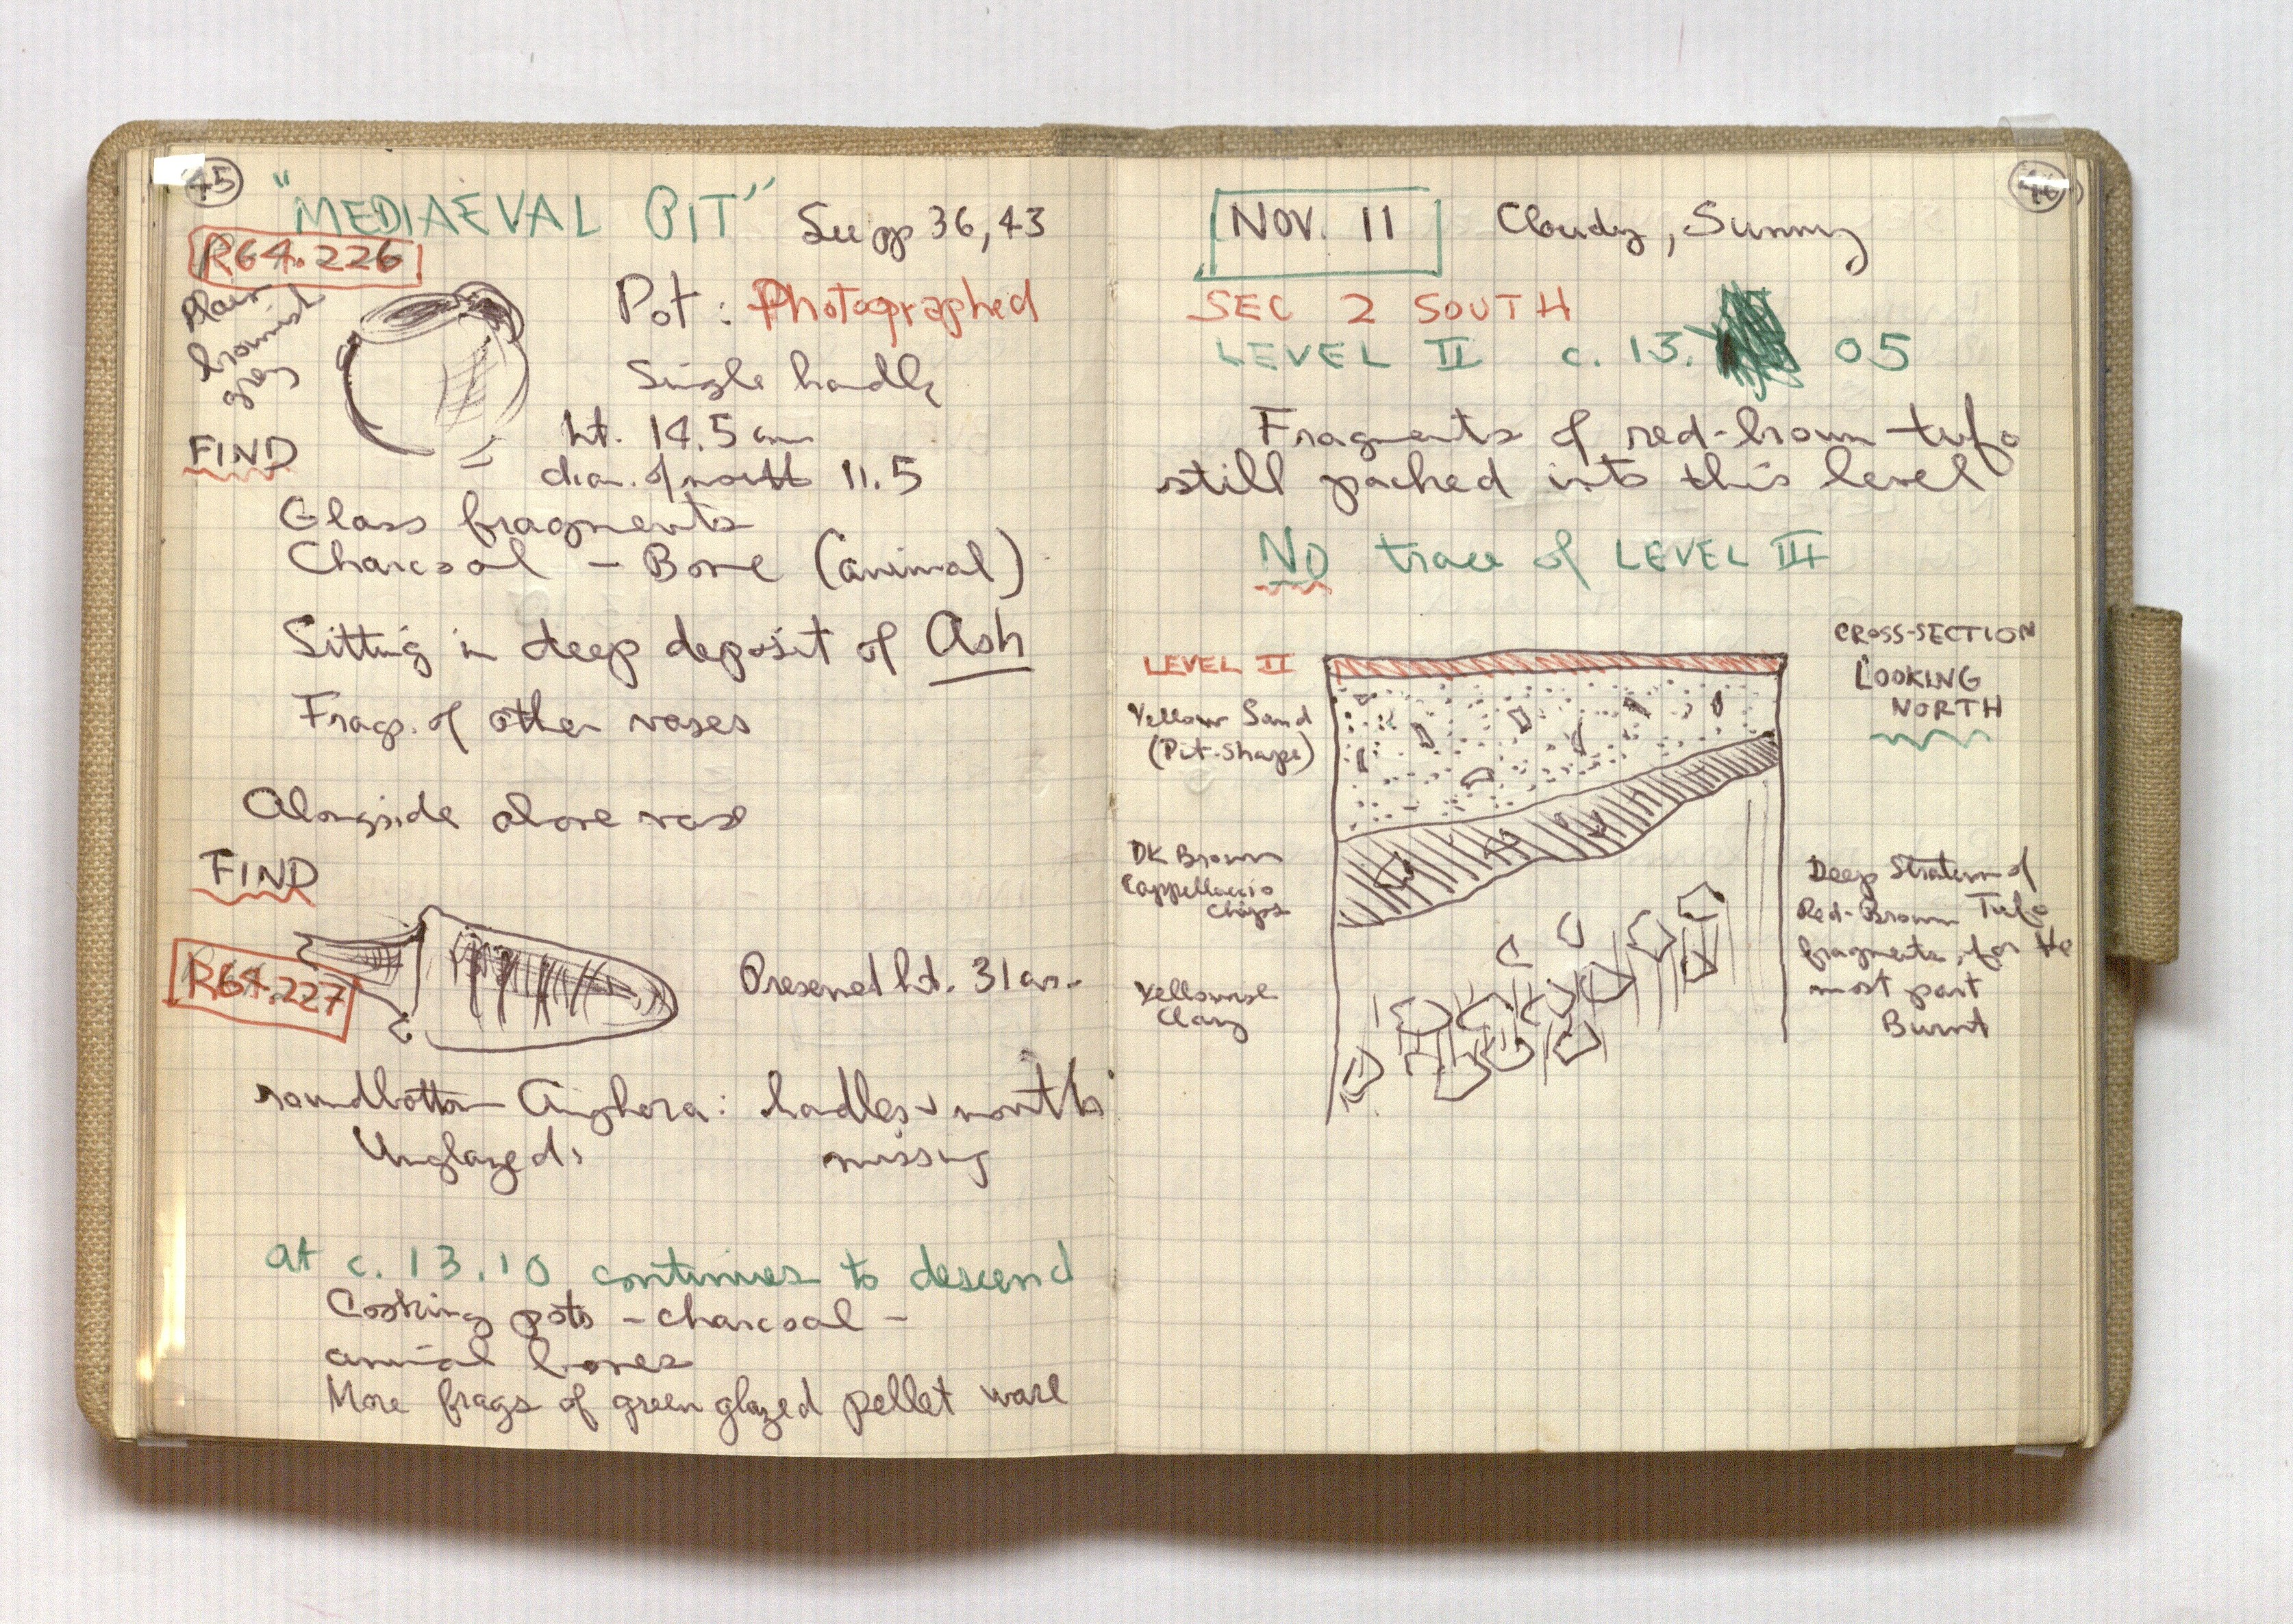 45
"MEDIAEVAL PIT" See pp 36, 43
R64.226
Plain
brownish
grey
Pot: Photographed
Single handle
FIND
ht. 14.5 cm
diam. of mouth 11.5
Glass fragments
Charcoal – Bone (animal)
Sitting in deep deposit of Ash
Frags. of other vases
Alongside above vase
FIND
R64.227
Preserved ht. 31 cm.
roundbottom Amphora: handles & mouth
Unglazed: missing
at c. 13.10 continues to descend
Cooking pots – charcoal –
animal bones
More frags of green glazed pellet ware
46
NOV. 11 Cloudy, Sunny
SEC 2 SOUTH
LEVEL II c. 13. 05
Fragments of red-brown tufo
still packed into this level
NO trace of LEVEL III
CROSS-SECTION
LOOKING
NORTH
LEVEL II
Yellow Sand
(Pit-Shape)
DK Brown
Cappellaccio
Chips
Yellowish
Clay
Deep Stratum of
Red-Brown Tufo
fragments, for the
most part
Burnt